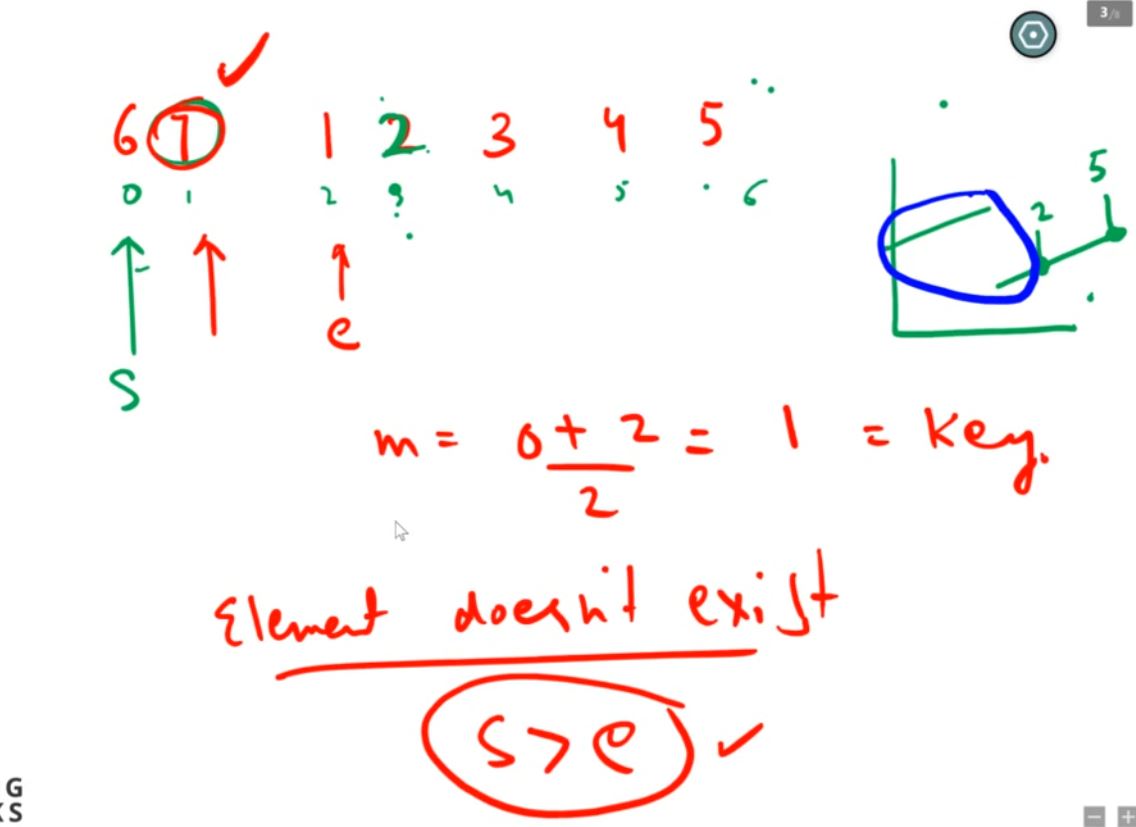 3/8
6 7 1 2 3 4 5
0 1 2 3 4 5 6
5
2
S
e
m = 0 + 2 / 2 = 1 = key.
Element doesn't exist
S > e
G
KS